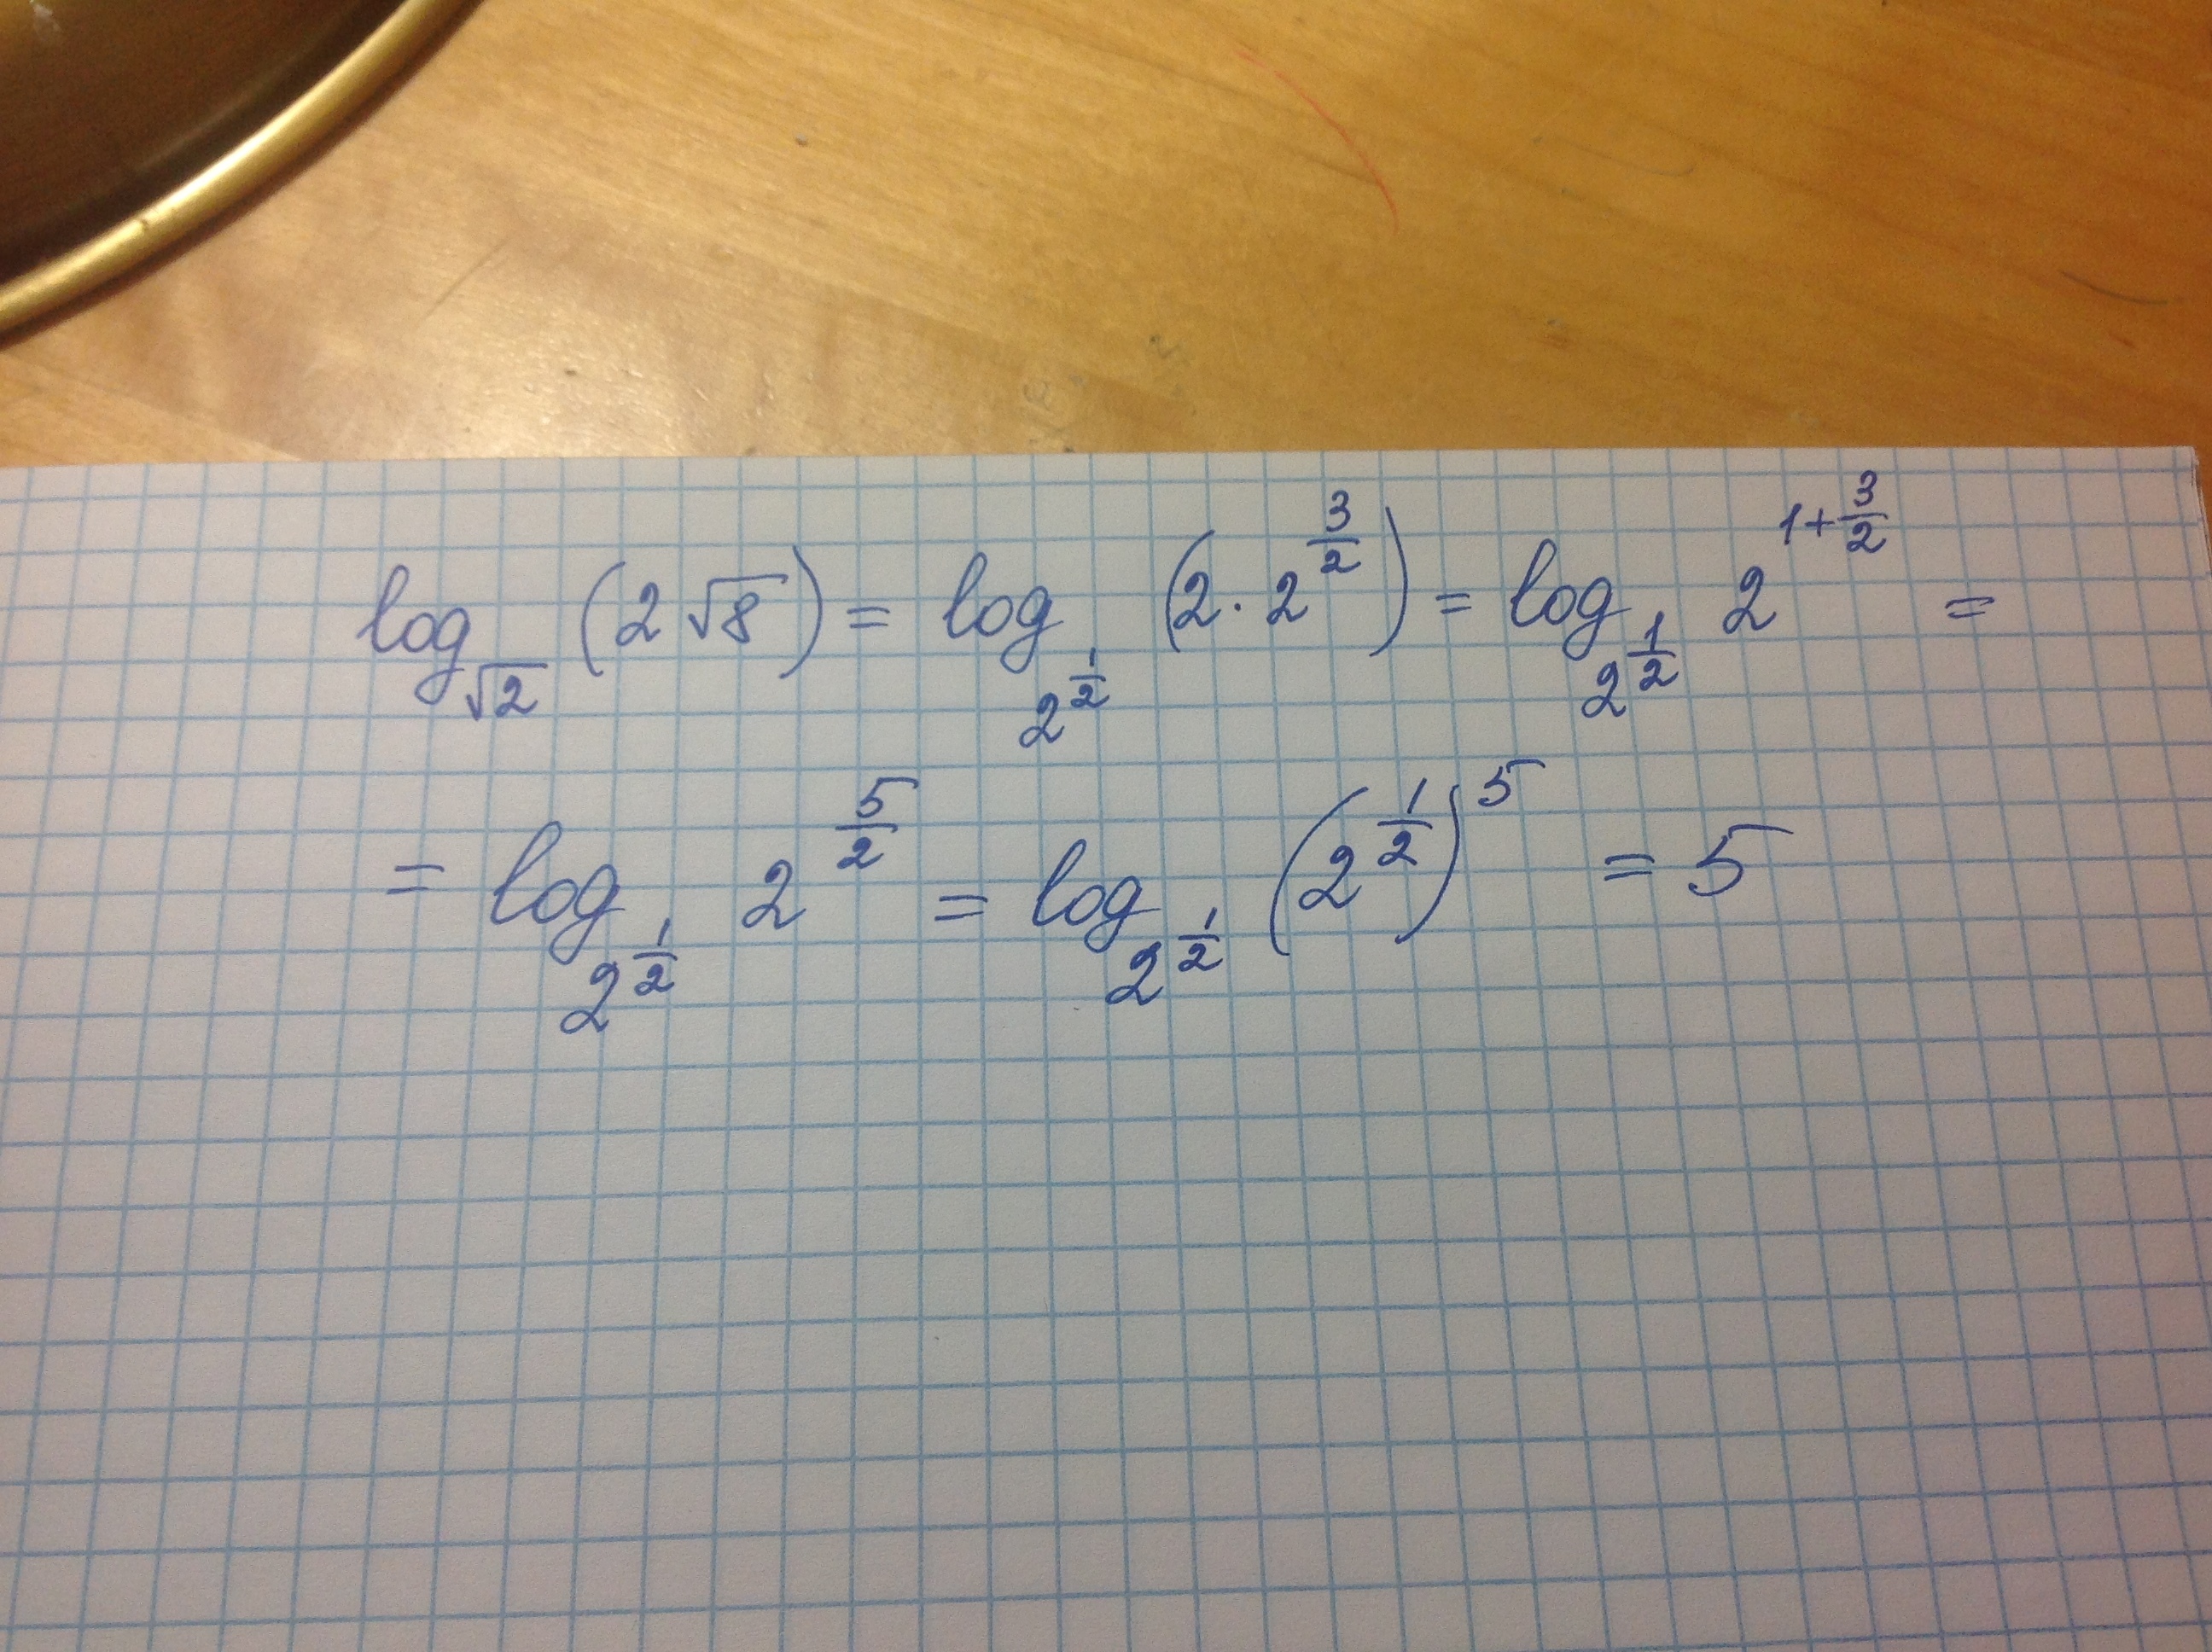 log_{√2} (2√8) = log_{2^{1/2}} (2 · 2^{3/2}) = log_{2^{1/2}} 2^{1+3/2} =
= log_{2^{1/2}} 2^{5/2} = log_{2^{1/2}} (2^{1/2})^5 = 5